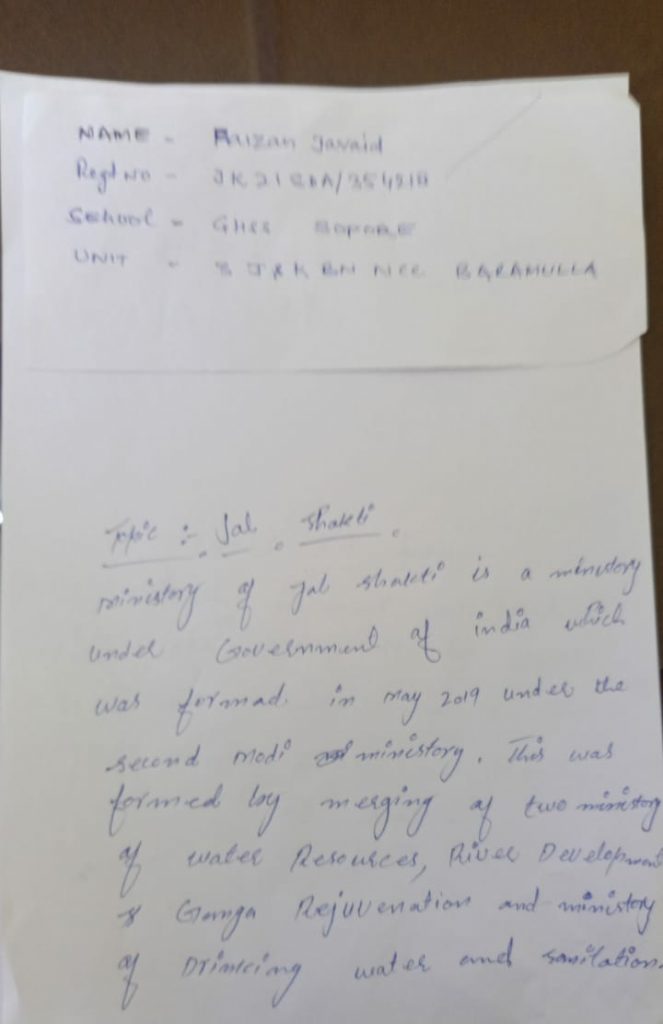 NAME - Faizan Javaid
Regt No - JK21SDA/354918
School - GHSS SOPORE
UNIT - 8 J&K BN NCC BARAMULLA
Topic :- Jal Shakti.
ministory of Jal shakti is a ministory
under Government of india which
was formad. in may 2019 under the
second modi ministory. This was
formed by merging of two ministory
of water Resources, River Development
& Ganga Rejuvenation and ministory
of Drinking water and sanitation.